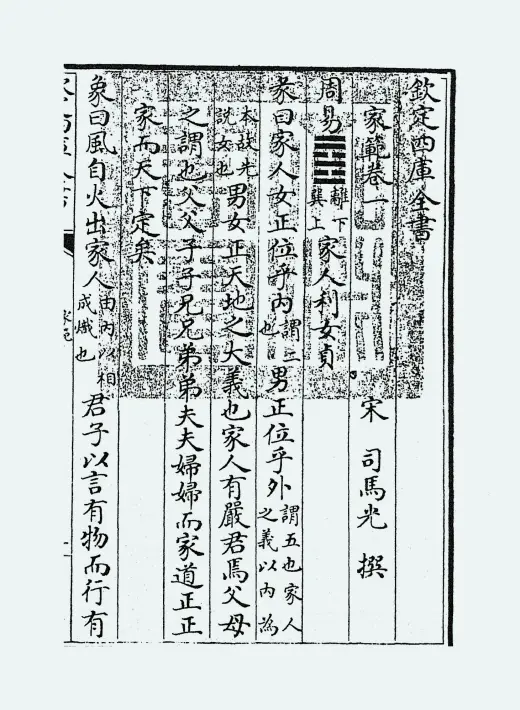 欽定四庫全書
家範卷一 宋 司馬光 撰
周易 離下 巽上 家人利女貞
彖曰家人女正位乎内 謂二也 男正位乎外 謂五也家人之義以内為
本故先説女也 男女正天地之大義也家人有嚴君焉父母
之謂也父父子子兄兄弟弟夫夫婦婦而家道正正
家而天下定矣
象曰風自火出家人 由内以相成熾也 君子以言有物而行有